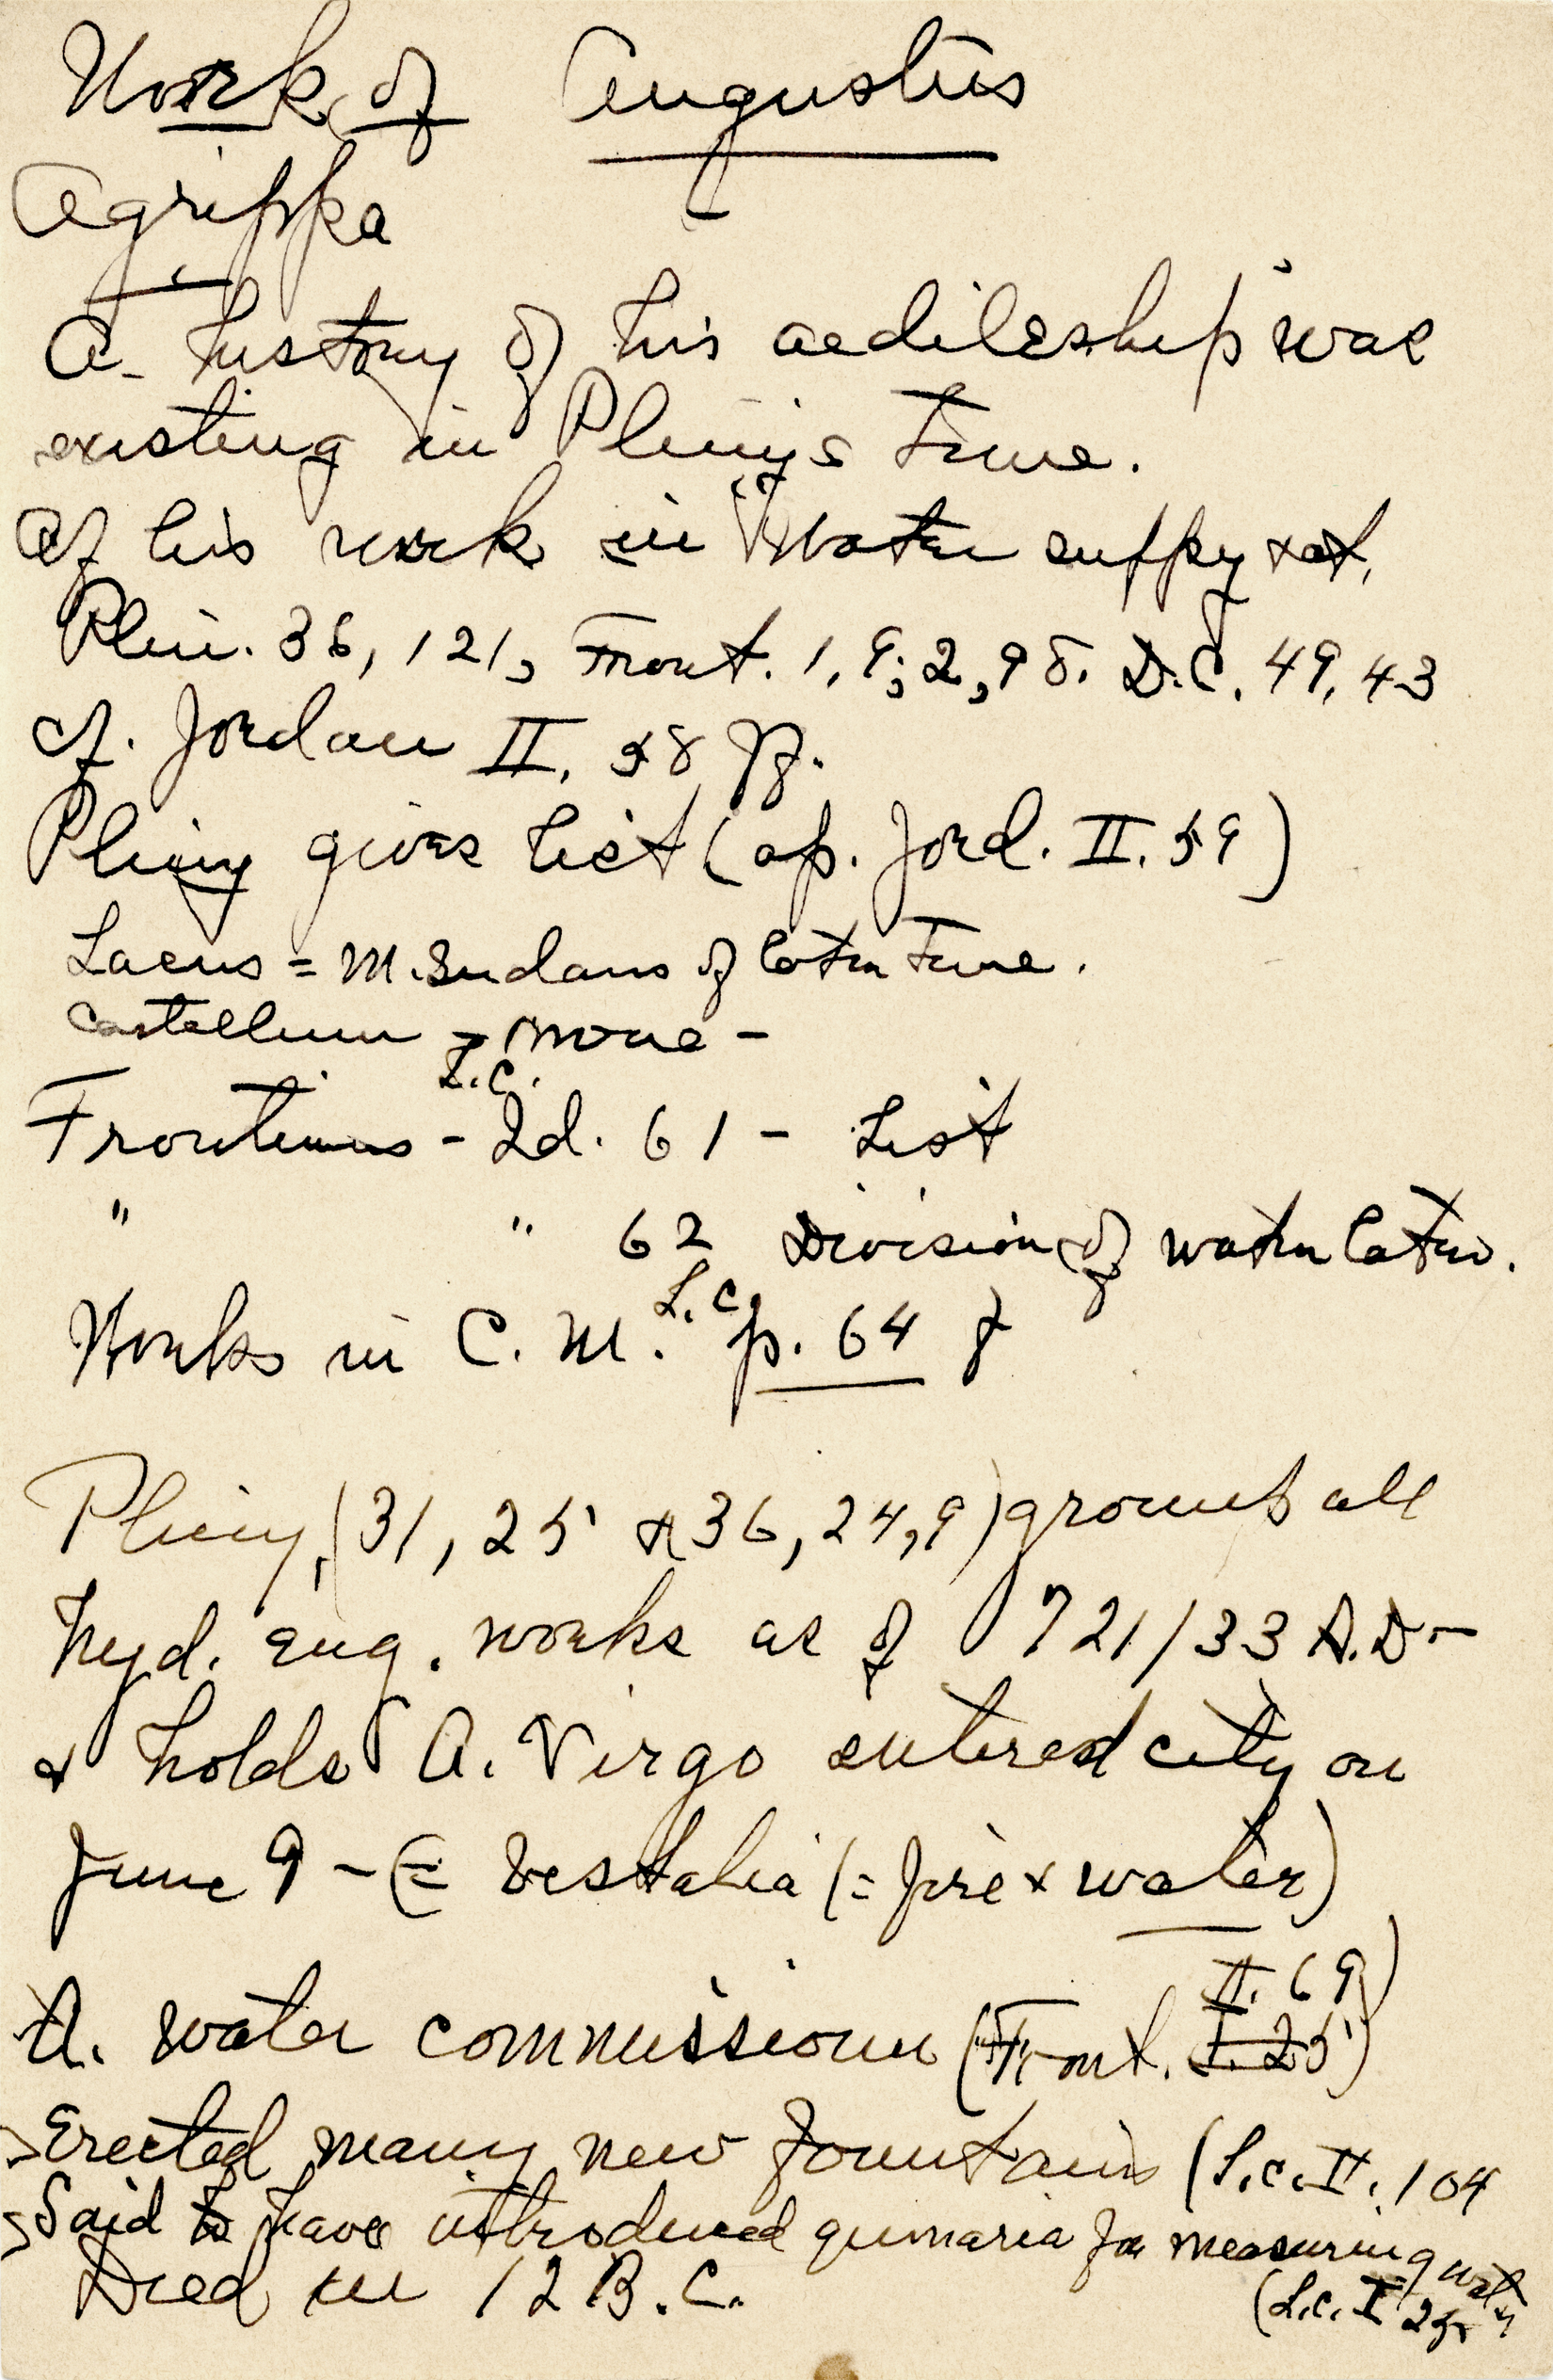 Work of Augustus
Agrippa
A history of his aedileship was
existing in Pliny's time.
Of his work in Water supply cf.
Plin. 36, 121, Front. 1, 9; 2, 98. D.C. 49, 43
cf. Jordan II, 58 ff.
Pliny gives list (ap. Jord. II. 59)
Lacus = M. Sudans of later time.
Castellum = more -
L.c.
Frontinus - Id. 61 - List
" " 62 Division of water later.
Works in C. M. L.c. p. 64 f
Pliny, (31, 25 & 36, 24, 9) groups all
hyd. eng. works as of 721/33 A.D-
& holds A. Virgo entered city on
June 9 - (= Vestalia (= fire & water)
II. 69)
A. water commissioner (Front. I. 25)
Erected many new fountains (L.c. II. 104
Said to have introduced quinaria for measuring water
Died in 12 B.C. (L.c. I 25